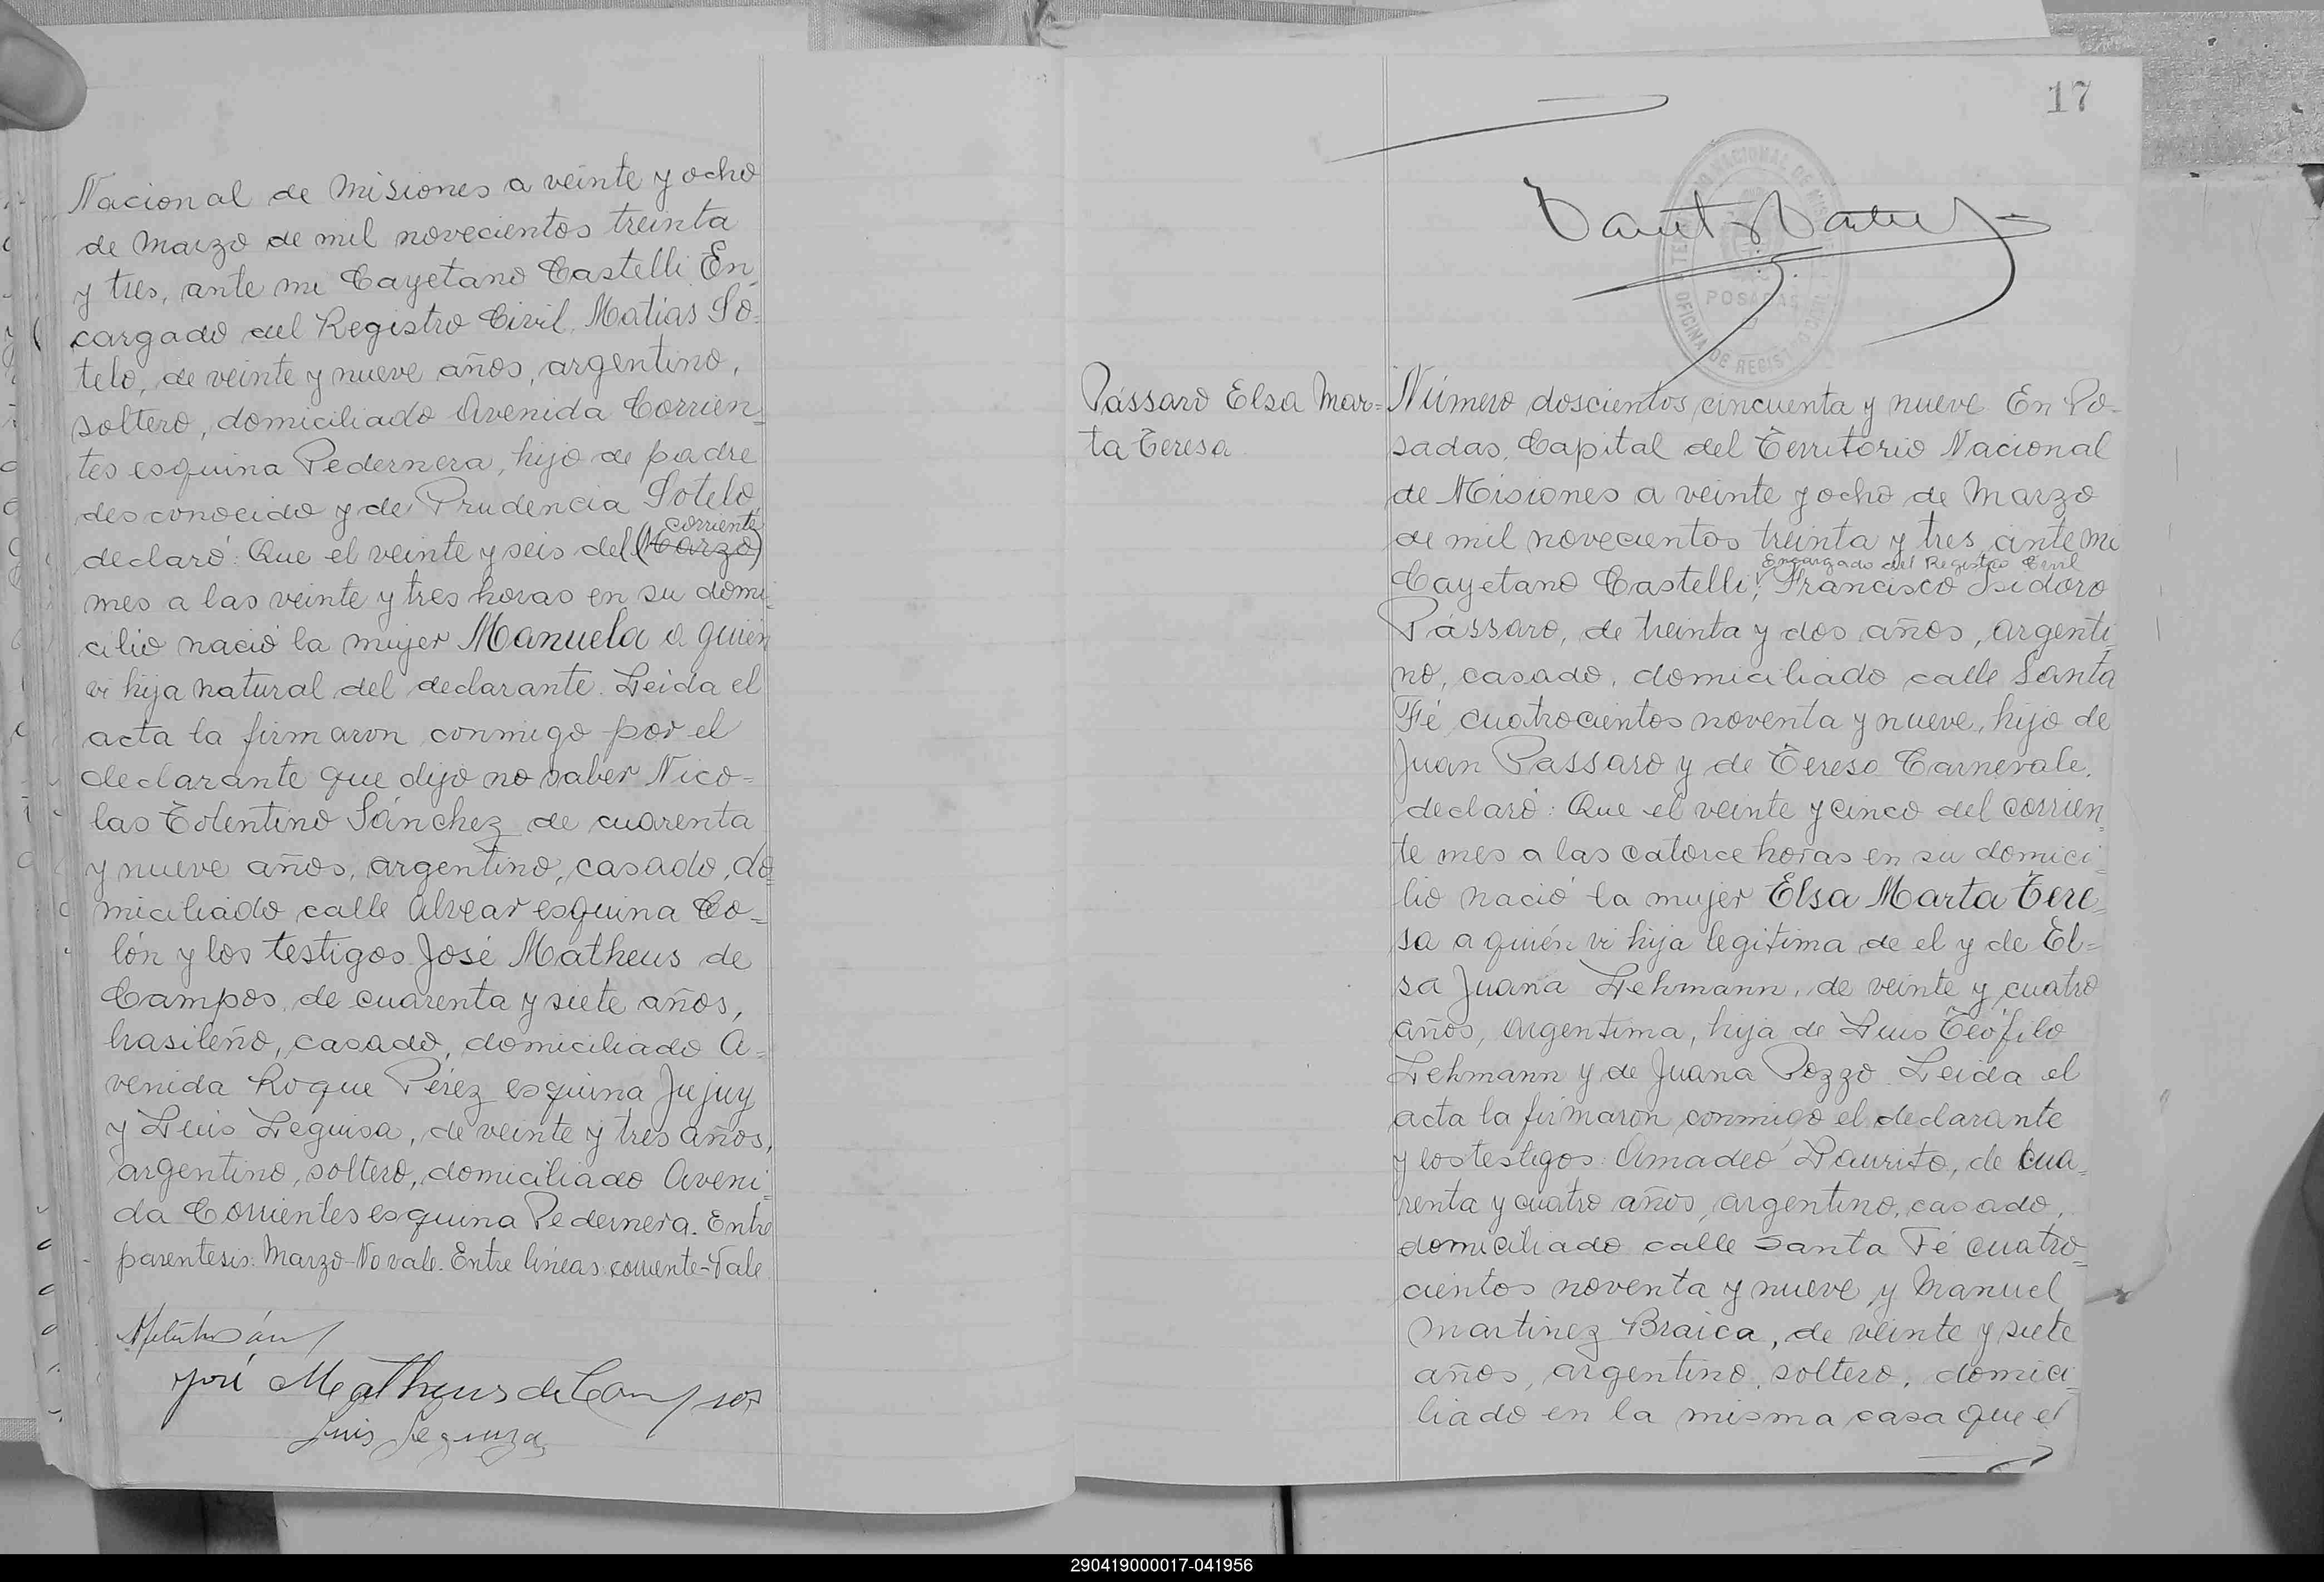 Nacional de Misiones a veinte y ocho
de Marzo de mil novecientos treinta
y tres, ante mi Cayetano Castelli En-
cargado del Registro Civil, Matías So-
telo, de veinte y nueve años, argentino,
soltero, domiciliado Avenida Corrien-
tes esquina Pedernera, hijo de padre
desconocido y de Prudencia Sotelo,
corriente
declaró: Que el veinte y seis del (Marzo)
mes a las veinte y tres horas en su domi-
cilio nació la mujer Manuela a quién
vi hija natural del declarante. Leida el
acta la firmaron conmigo por el
declarante que dijo no saber Nico-
las Tolentino Sánchez de cuarenta
y nueve años, argentino, casado, do-
miciliado calle Alvear esquina Co-
lón y los testigos José Matheus de
Campos, de cuarenta y siete años,
brasileño, casado, domiciliado A-
venida Roque Pérez esquina Jujuy
y Luis Leguisa, de veinte y tres años,
argentino, soltero, domiciliado Aveni-
da Corrientes esquina Pedernera. Entre
parentesis: Marzo-No vale. Entre líneas: corriente-Vale
José Matheus de Campos
Luis Leguiza
17
TERRITORIO NACIONAL DE MISIONES
POSADAS
OFICINA DE REGISTRO CIVIL
Pássaro Elsa Mar-
ta Teresa
Número doscientos cincuenta y nueve. En Po-
sadas, Capital del Territorio Nacional
de Misiones a veinte y ocho de Marzo
de mil novecientos treinta y tres, ante mi
Encargado del Registro Civil
Cayetano Castelli, Francisco Isidoro
Pássaro, de treinta y dos años, argenti-
no, casado, domiciliado calle Santa
Fé cuatrocientos noventa y nueve, hijo de
Juan Passaro y de Teresa Carnevale,
declaró: Que el veinte y cinco del corrien-
te mes a las catorce horas en su domici-
lio nació la mujer Elsa Marta Tere-
sa a quién vi hija legitima de el y de El-
sa Juana Lehmann, de veinte y cuatro
años, argentina, hija de Luis Teófilo
Lehmann y de Juana Pozzo. Leida el
acta la firmaron conmigo el declarante
y los testigos: Amadeo Laurito, de cua-
renta y cuatro años, argentino, casado,
domiciliado calle Santa Fé cuatro-
cientos noventa y nueve y Manuel
Martinez Braica, de veinte y siete
años, argentino, soltero, domici-
liado en la misma casa que el
290419000017-041956